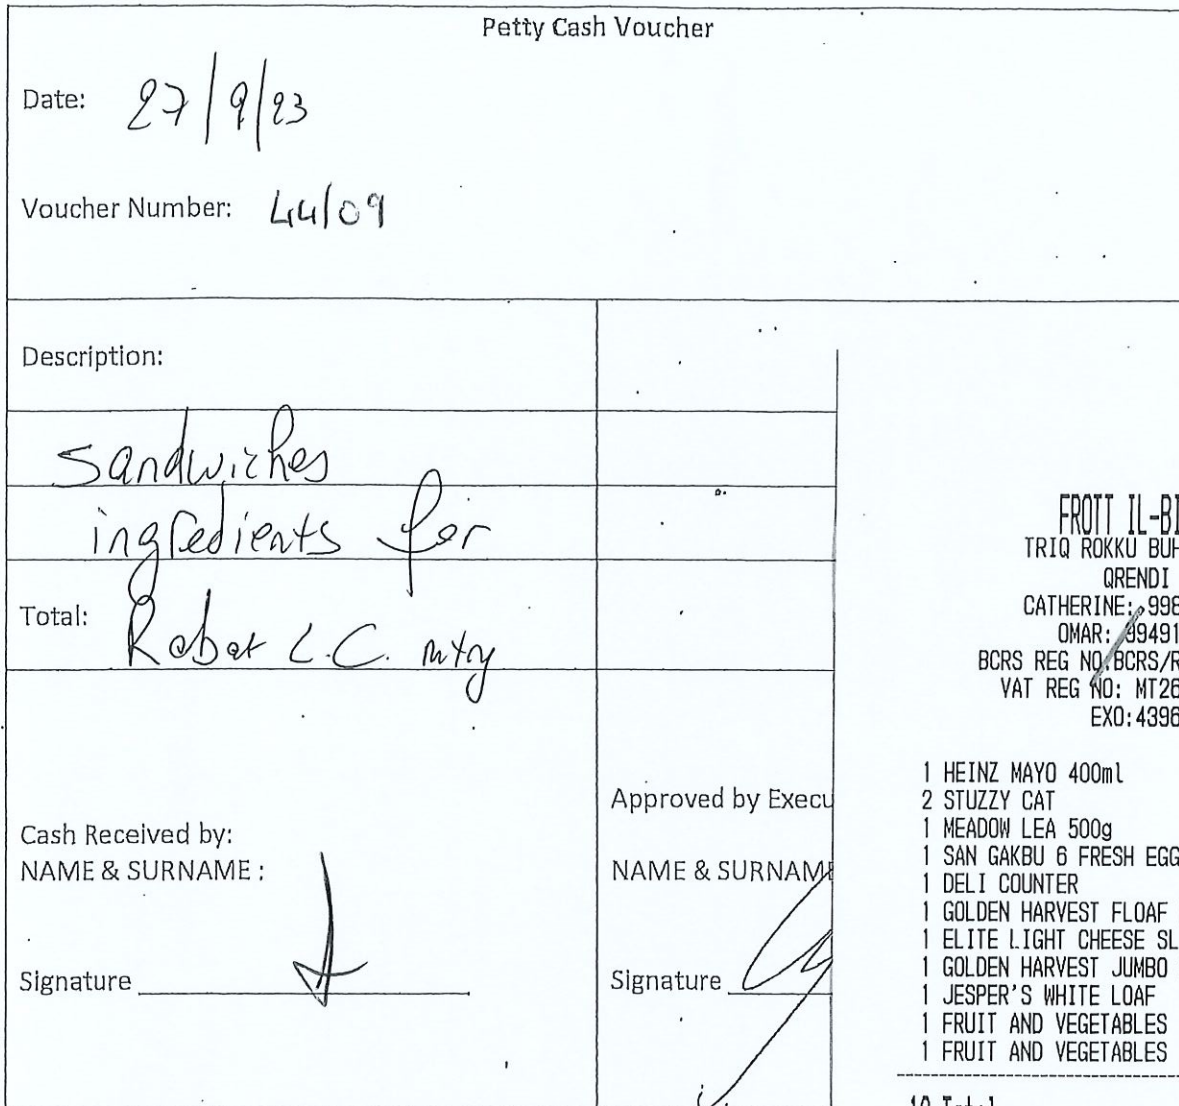 Petty Cash Voucher
Date: 27/9/23
Voucher Number: 44/09
Description:
sandwiches
ingredients for
Total: Rabat L.C. mtng
Cash Received by:
NAME & SURNAME :
Signature
Approved by Execu
NAME & SURNAME
Signature
FROTT IL-BI
TRIQ ROKKU BUH
QRENDI
CATHERINE: 998
OMAR: 99491
BCRS REG NO.BCRS/R
VAT REG NO: MT26
EXO:4396
1 HEINZ MAYO 400ml
2 STUZZY CAT
1 MEADOW LEA 500g
1 SAN GAKBU 6 FRESH EGG
1 DELI COUNTER
1 GOLDEN HARVEST FLOAF
1 ELITE LIGHT CHEESE SL
1 GOLDEN HARVEST JUMBO
1 JESPER'S WHITE LOAF
1 FRUIT AND VEGETABLES
1 FRUIT AND VEGETABLES
Total